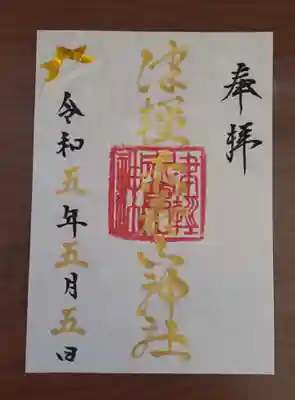 奉拝
津軽赤倉山神社
令和五年五月五日